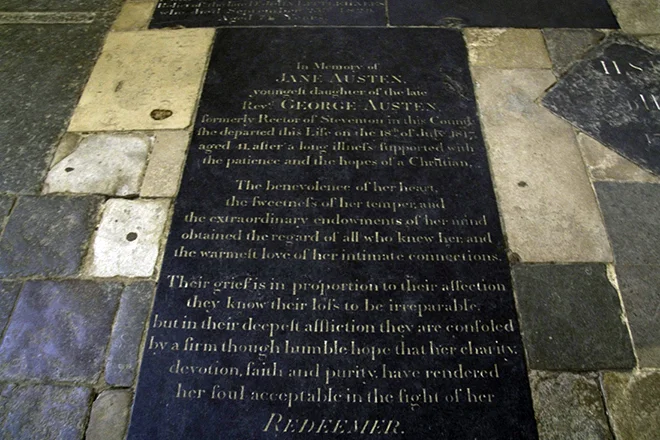 who died September
In Memory of
JANE AUSTEN,
youngeſt daughter of the late
Revd. GEORGE AUSTEN,
formerly Rector of Steventon in this County
ſhe departed this Life on the 18th of July 1817,
aged 41, after a long illneſs ſupported with
the patience and the hopes of a Chriſtian.
The benevolence of her heart,
the ſweetneſs of her temper, and
the extraordinary endowments of her mind
obtained the regard of all who knew her, and
the warmeſt love of her intimate connections.
Their grief is in proportion to their affection
they know their loſs to be irreparable,
but in their deepeſt affliction they are conſoled
by a firm though humble hope that her charity,
devotion, faith and purity, have rendered
her ſoul acceptable in the ſight of her
REDEEMER.